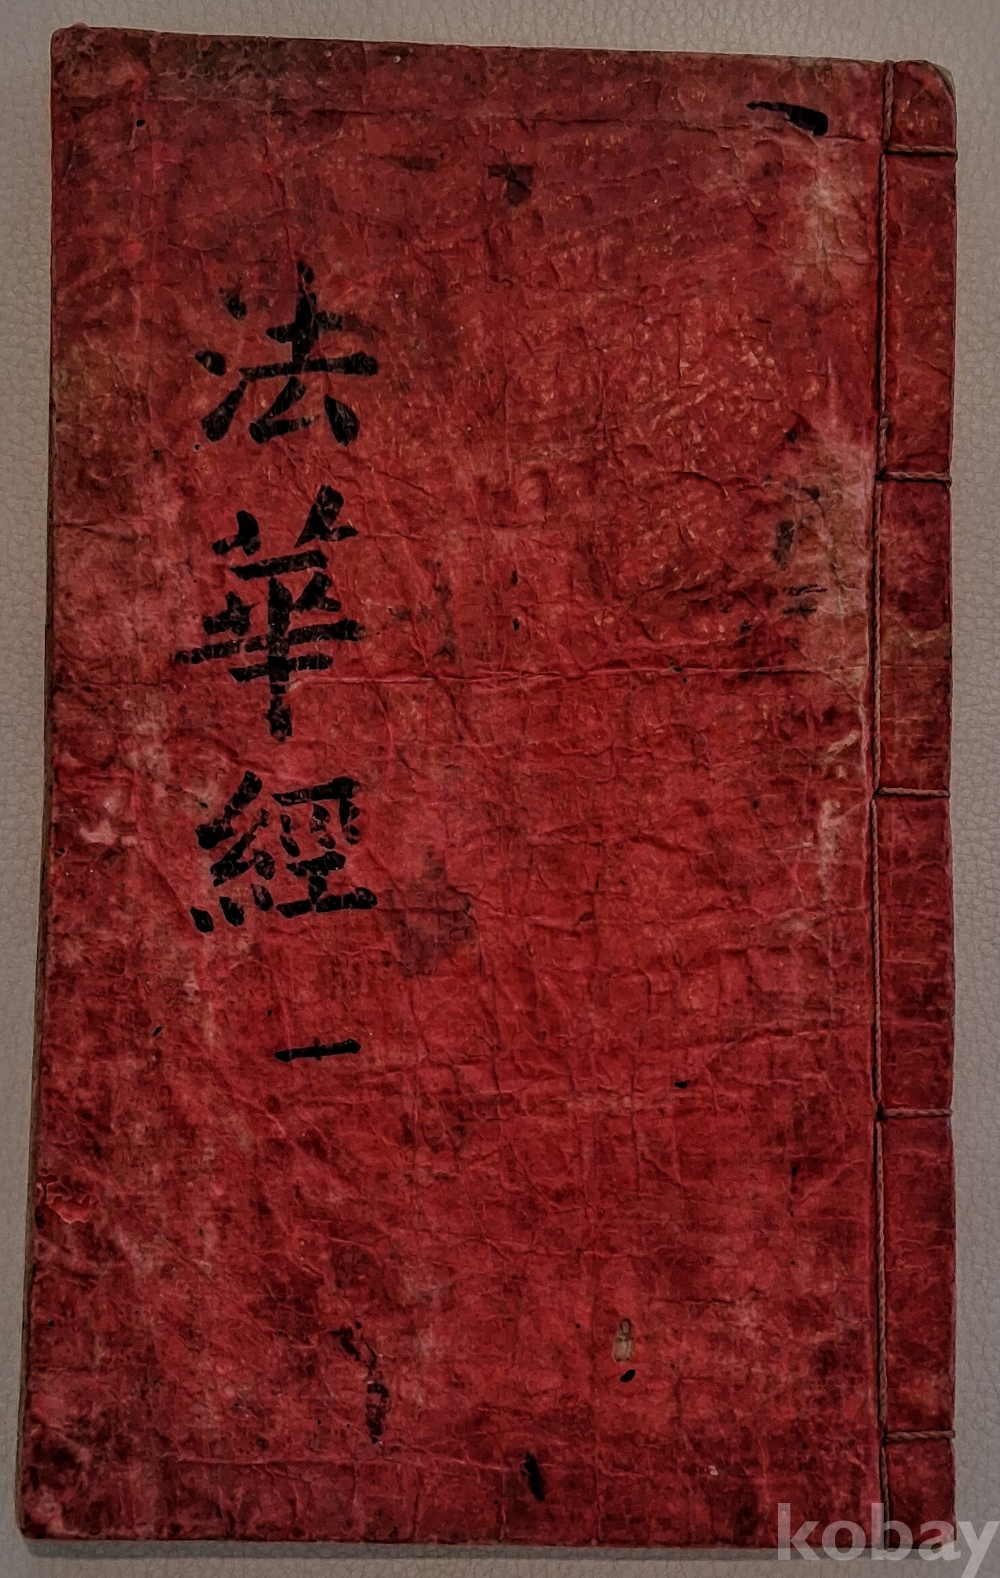 法華經 一
kobay